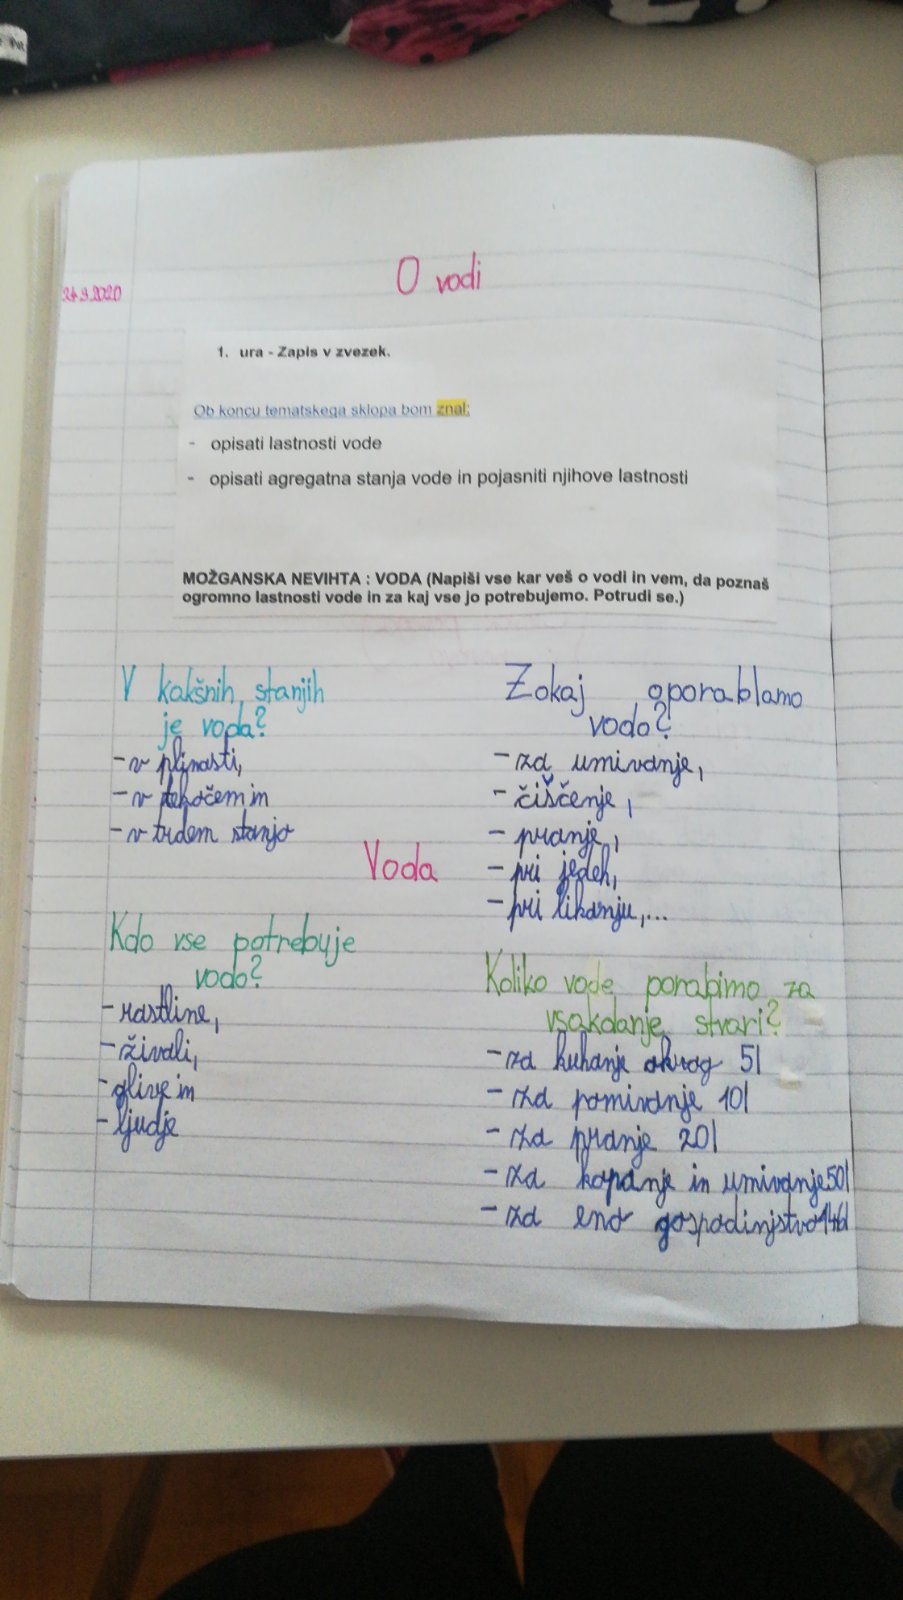 O vodi
24.3.2020
1. ura - Zapis v zvezek.
Ob koncu tematskega sklopa bom znal:
- opisati lastnosti vode
- opisati agregatna stanja vode in pojasniti njihove lastnosti
MOŽGANSKA NEVIHTA : VODA (Napiši vse kar veš o vodi in vem, da poznaš
ogromno lastnosti vode in za kaj vse jo potrebujemo. Potrudi se.)
V kakšnih stanjih
je voda?
- v plinasti,
- v tekočem in
- v trdem stanju
Zakaj uporablamo
vodo?
- za umivanje,
- čiščenje,
- pranje,
- pri jedeh,
- pri likanju,...
Voda
Kdo vse potrebuje
vodo?
- rastline,
- živali,
- glive in
- ljudje
Koliko vode porabimo za
vsakdanje stvari?
- za kuhanje okrog 5l
- za pomivanje 10l
- za pranje 20l
- za kopanje in umivanje 50l
- za eno gospodinjstvo 146l